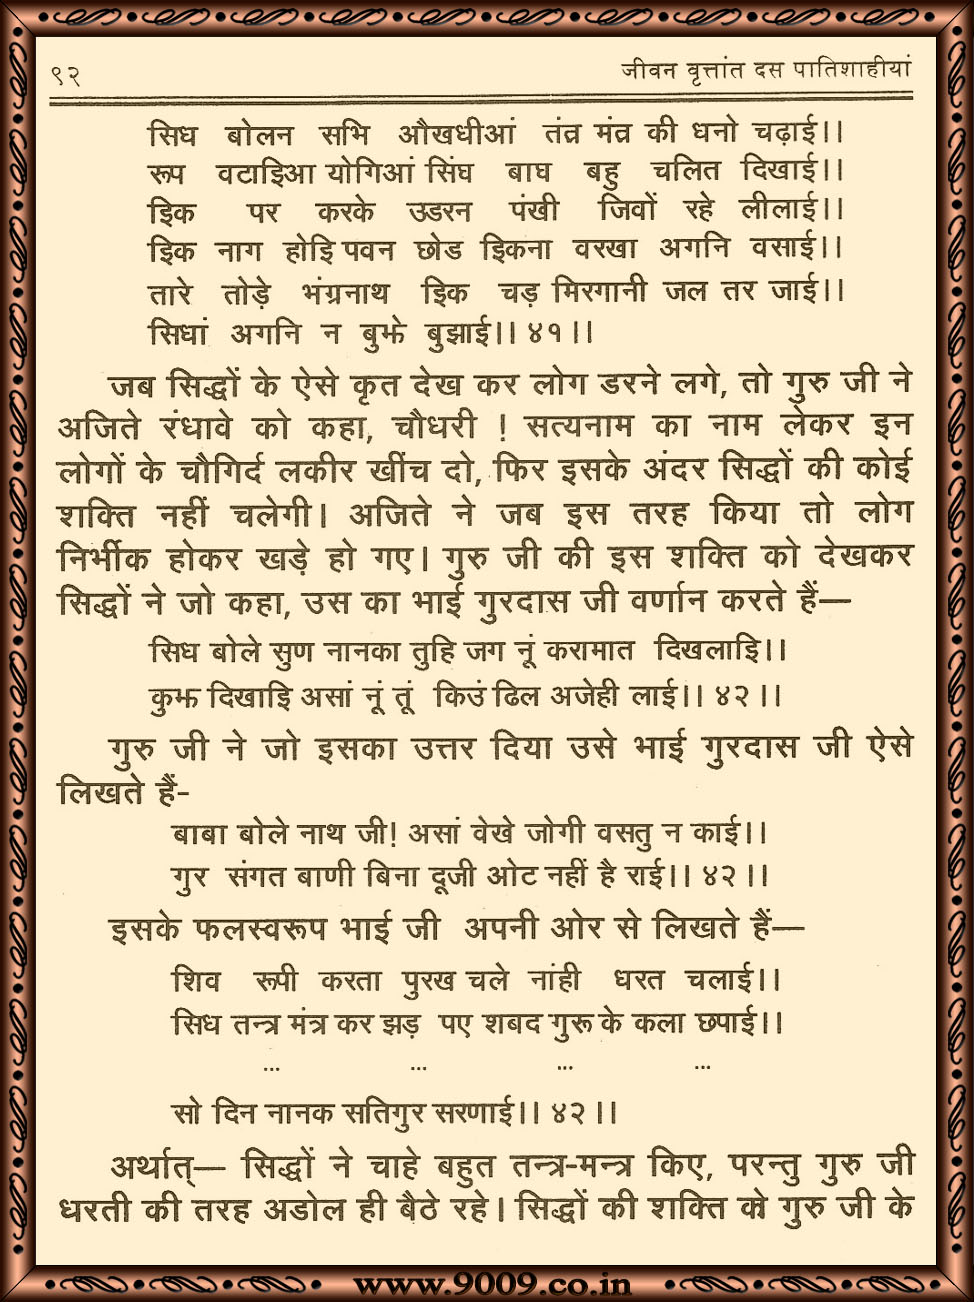 ९२ जीवन वृत्तांत दस पातिशाहीयां
सिध बोलन सभि औखधीआं तंत्र मंत्र की धनो चढ़ाई।।
रूप वटाइिआ योगिआं सिंघ बाघ बहु चलित दिखाई।।
इिक पर करके उडरन पंखी जिवों रहे लीलाई।।
इिक नाग होइि पवन छोड इिकना वरखा अगनि वसाई।।
तारे तोड़े भंग्रनाथ इिक चड़ मिरगानी जल तर जाई।।
सिधां अगनि न बुझे बुझाई।। ४१।।
जब सिद्धों के ऐसे कृत देख कर लोग डरने लगे, तो गुरु जी ने
अजिते रंधावे को कहा, चौधरी ! सत्यनाम का नाम लेकर इन
लोगों के चौगिर्द लकीर खींच दो, फिर इसके अंदर सिद्धों की कोई
शक्ति नहीं चलेगी। अजिते ने जब इस तरह किया तो लोग
निर्भीक होकर खड़े हो गए। गुरु जी की इस शक्ति को देखकर
सिद्धों ने जो कहा, उस का भाई गुरदास जी वर्णान करते हैं—
सिध बोले सुण नानका तुहि जग नूं करामात दिखलाइि।।
कुझ दिखाइि असां नूं तूं किउं ढिल अजेही लाई।। ४२ ।।
गुरु जी ने जो इसका उत्तर दिया उसे भाई गुरदास जी ऐसे
लिखते हैं-
बाबा बोले नाथ जी! असां वेखे जोगी वसतु न काई।।
गुर संगत बाणी बिना दूजी ओट नहीं है राई।। ४२ ।।
इसके फलस्वरूप भाई जी अपनी ओर से लिखते हैं—
शिव रूपी करता पुरख चले नांही धरत चलाई।।
सिध तन्त्र मंत्र कर झड़ पए शबद गुरू के कला छपाई।।
... ... ... ...
सो दिन नानक सतिगुर सरणाई।। ४२ ।।
अर्थात्— सिद्धों ने चाहे बहुत तन्त्र-मन्त्र किए, परन्तु गुरु जी
धरती की तरह अडोल ही बैठे रहे। सिद्धों की शक्ति को गुरु जी के
www.9009.co.in